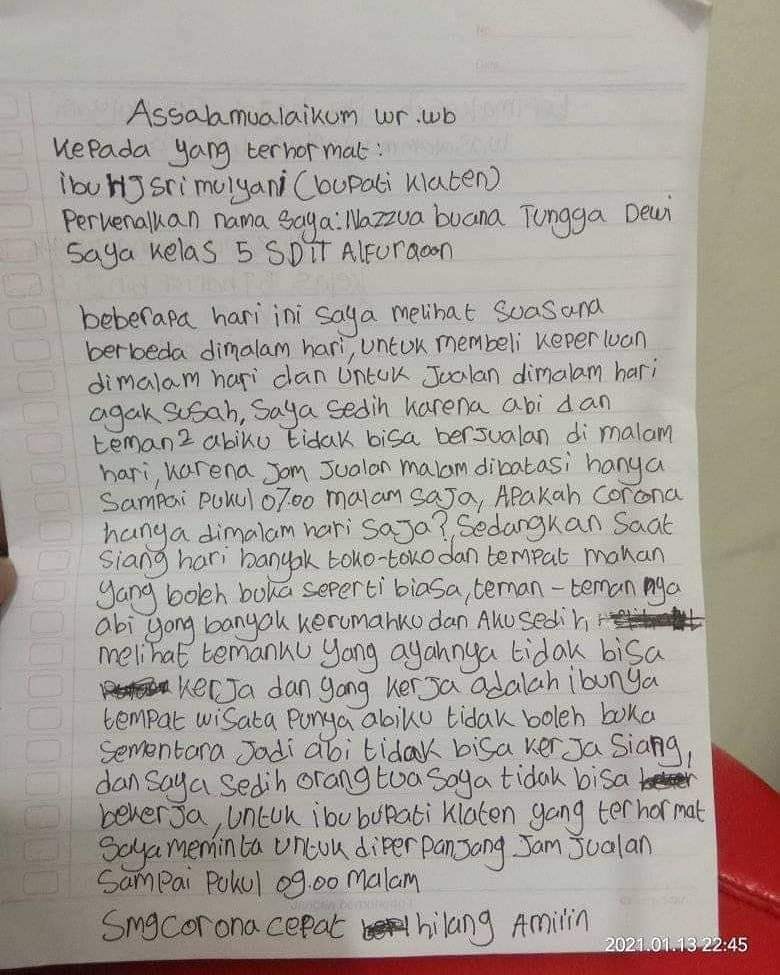 Assalamualaikum wr.wb
Kepada yang terhormat:
ibu HJ sri mulyani (bupati Klaten)
Perkenalkan nama saya: Nazzua buana Tungga Dewi
Saya kelas 5 SDIT Alfuraqon
beberapa hari ini saya melihat suasana
berbeda dimalam hari, untuk membeli keperluan
dimalam hari dan untuk Jualan dimalam hari
agak susah, saya sedih karena abi dan
teman2 abiku tidak bisa berjualan di malam
hari, karena Jam Jualan malam dibatasi hanya
Sampai pukul 07.00 malam saja, Apakah Corona
hanya dimalam hari saja?, Sedangkan Saat
siang hari banyak toko-toko dan tempat makan
yang boleh buka seperti biasa, teman-teman nya
abi yang banyak kerumahku dan Aku sedih,
melihat temanku yang ayahnya tidak bisa
kerja dan yang kerja adalah ibunya
tempat wisata punya abiku tidak boleh buka
sementara Jadi abi tidak bisa kerja siang,
dan saya sedih orang tua saya tidak bisa
bekerja, untuk ibu bupati Klaten yang terhormat
Saya meminta untuk diperpanjang Jam Jualan
Sampai Pukul 09.00 Malam
Smg corona cepat hilang Amiiin
2021.01.13 22:45